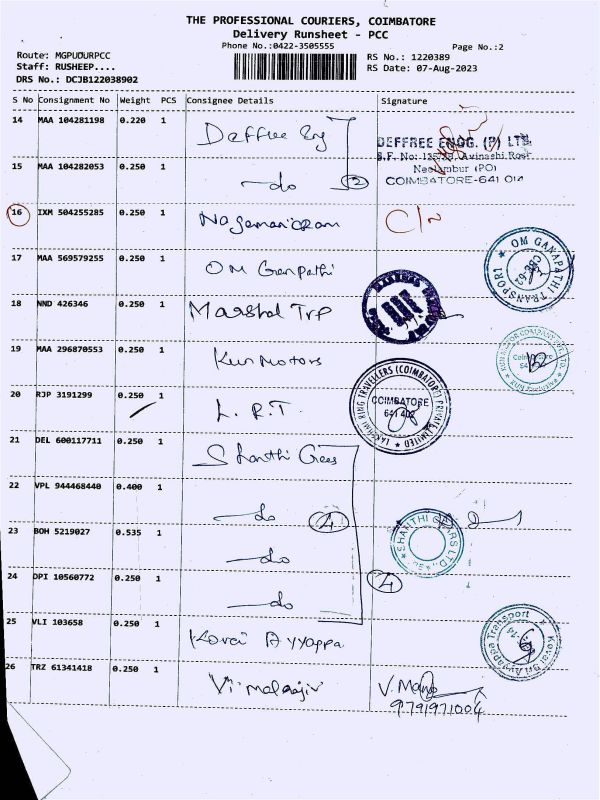 THE PROFESSIONAL COURIERS, COIMBATORE
Delivery Runsheet - PCC
Phone No.:0422-3505555
Page No.:2
Route: MGPUDURPCC
Staff: RUSHEEP....
DRS No.: DCJB122038902
RS No.: 1220389
RS Date: 07-Aug-2023
S No Consignment No Weight PCS Consignee Details Signature
14 MAA 104281198 0.220 1 Deffree Eng
DEFFREE ENGG. (P) LTD
S.F. No: Avinashi Road
Neelambur (PO)
COIMBATORE-641 014
15 MAA 104282053 0.250 1 do 2
16 IXM 504255285 0.250 1 Nagamanickam C/N
17 MAA 569579255 0.250 1 OM Ganpathi
OM GANAPATHI TRANSPORT
18 NND 426346 0.250 1 Marshal Trp
19 MAA 296870553 0.250 1 Kun Motors
Coimbatore
20 RJP 3191299 0.250 1 L.R.T.
LAKSHMI RING TRAVELLERS (COIMBATORE) PRIVATE LIMITED
COIMBATORE
641 402
21 DEL 600117711 0.250 1 Shanthi Gears
22 VPL 944468440 0.400 1 do 4
23 BOH 5219027 0.535 1 do
SHANTHI GEARS LTD.,
24 DPI 10560772 0.250 1 do 4
25 VLI 103658 0.250 1 Korai Ayyappa
Korai Sri Ayyappa Transport
26 TRZ 61341418 0.250 1 Vimalrajiv V. Mano
9791971004